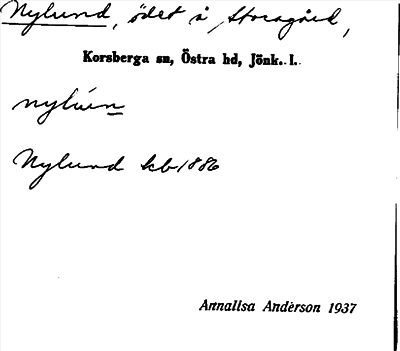 Nylund, ödet å Storagård,
Korsberga sn, Östra hd, Jönk. l.
nylún
Nylund kb 1886
Annalisa Anderson 1937